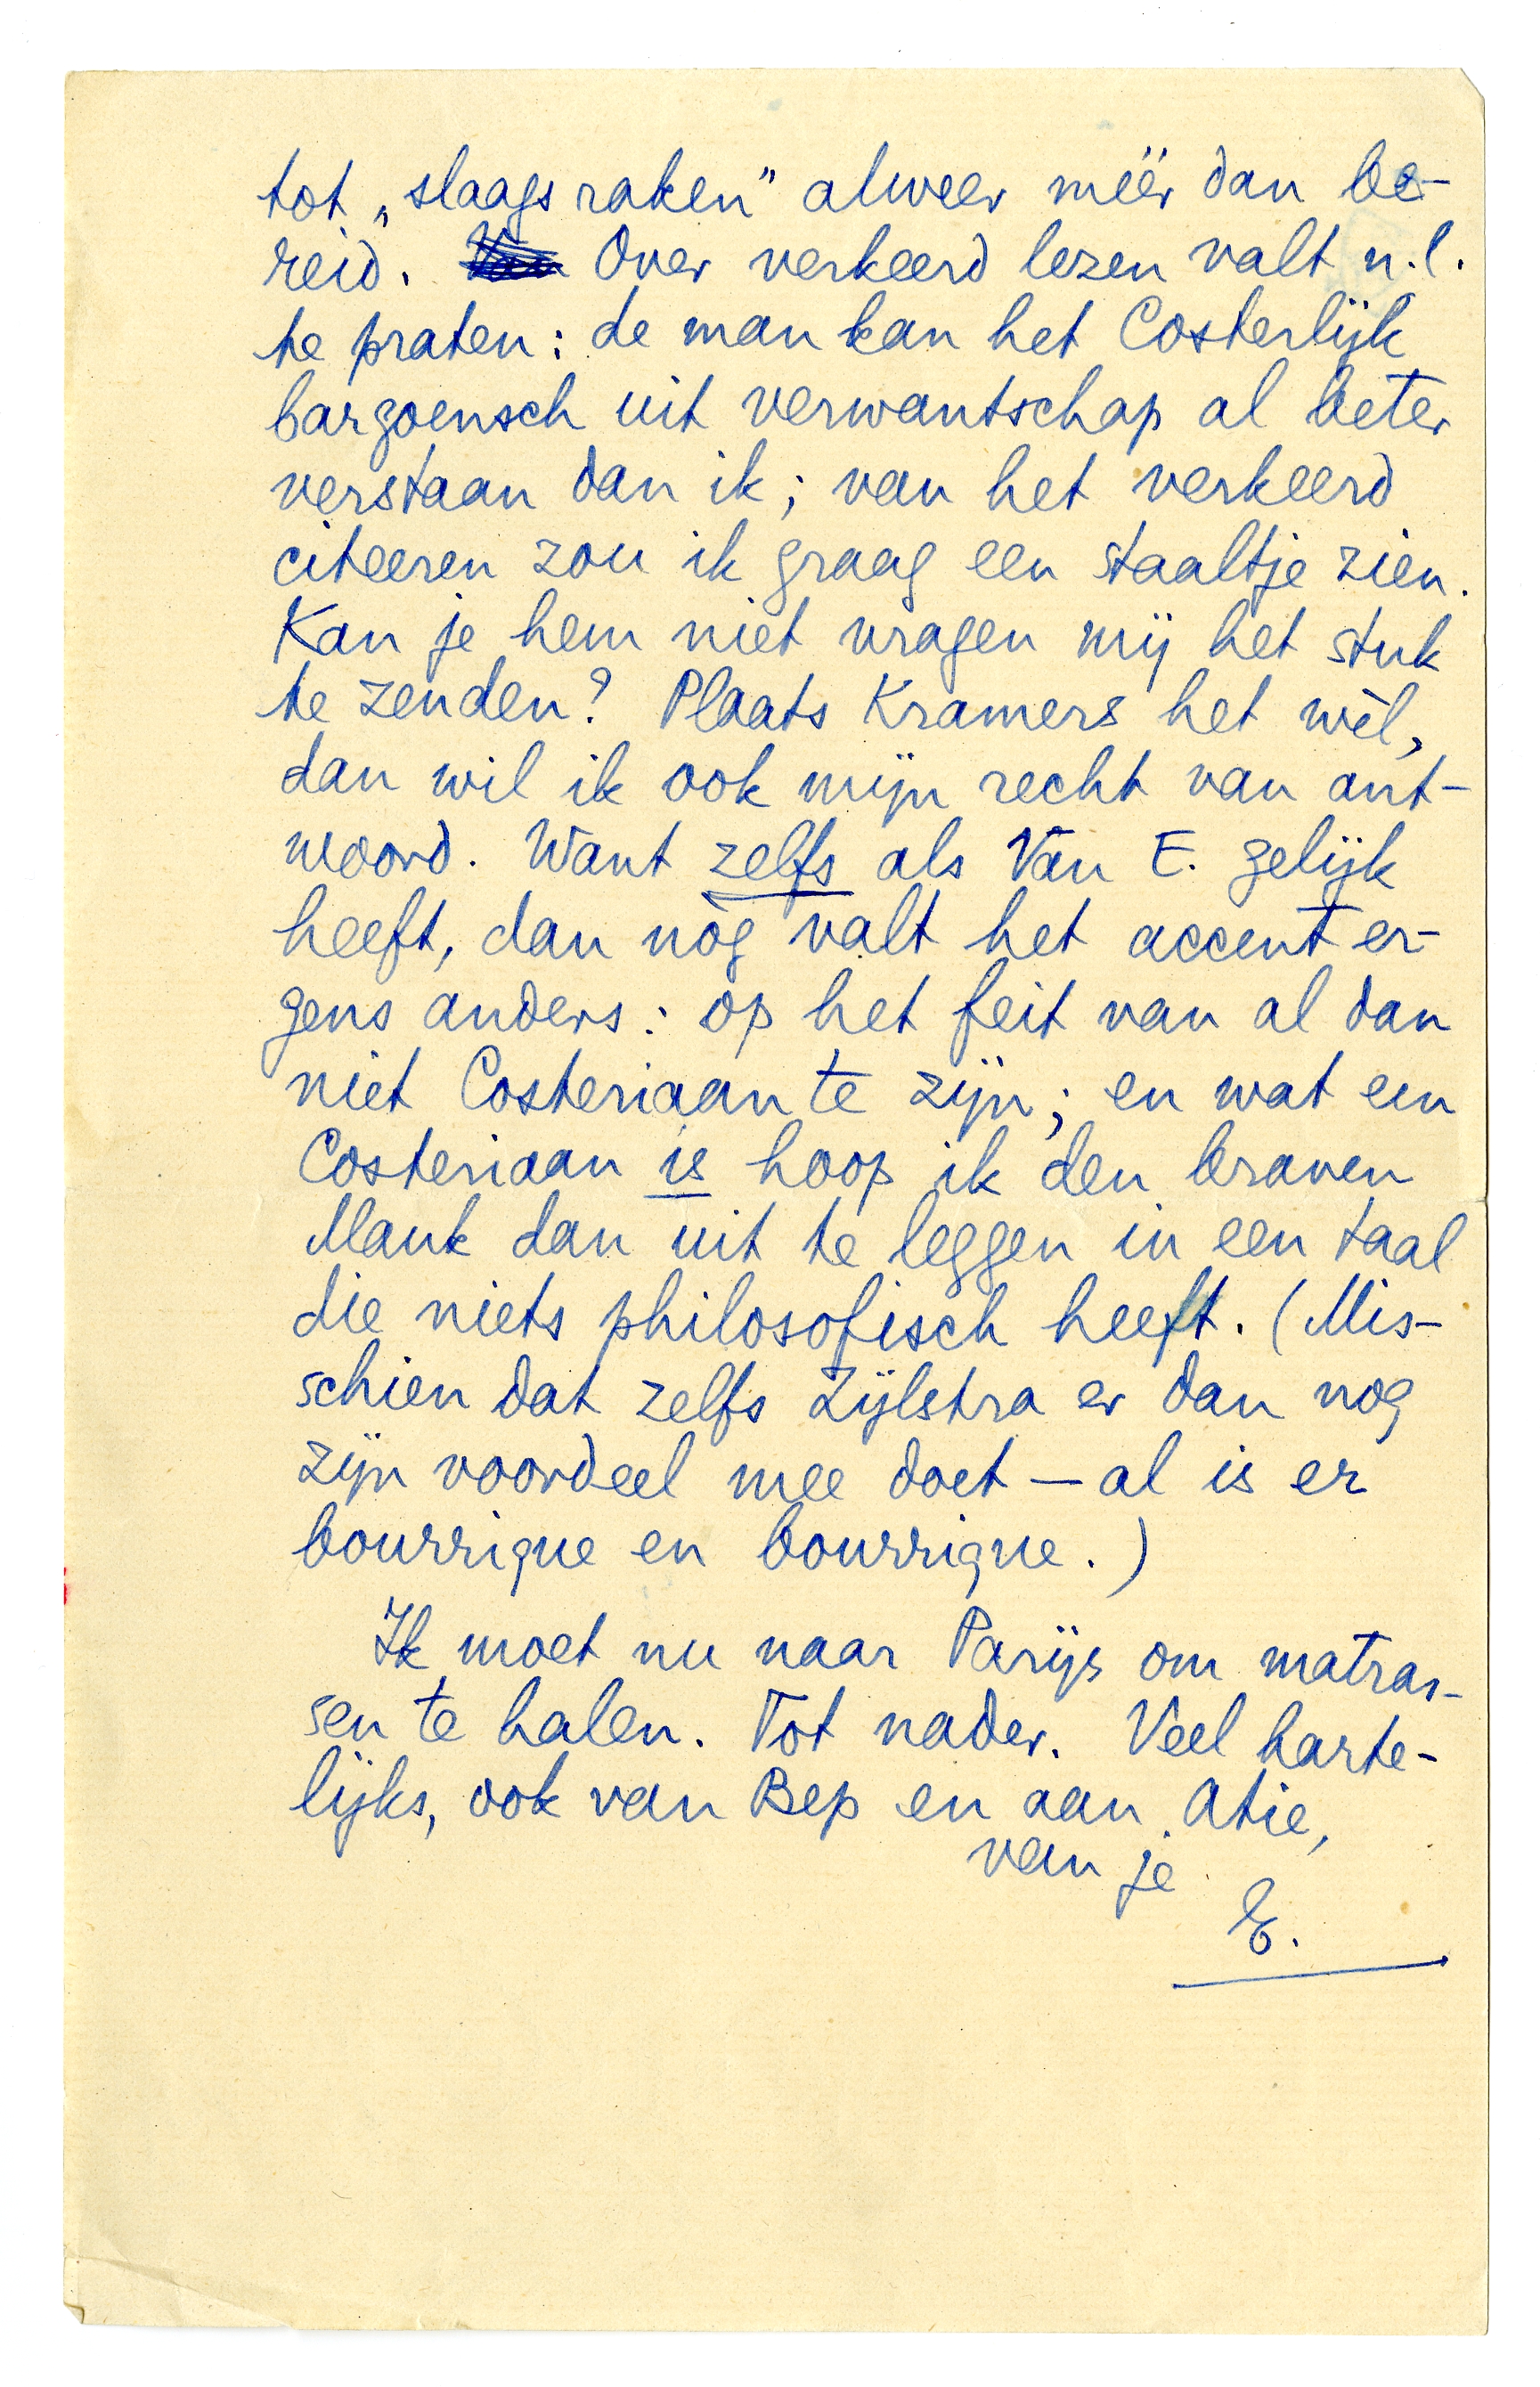 tot „slaags raken” alweer méér dan be-
reid. Over verkeerd lezen valt n.l.
te praten: de man kan het Costerlijk
bargoensch uit verwantschap al beter
verstaan dan ik; van het verkeerd
citeeren zou ik graag een staaltje zien.
Kan je hem niet vragen mij het stuk
te zenden? Plaats Kramers het wèl,
dan wil ik ook mijn recht van ant-
woord. Want zelfs als Van E. gelijk
heeft, dan nòg valt het accent er-
gens anders: op het feit van al dan
niet Costeriaan te zijn; en wat een
Costeriaan is hoop ik den braven
Mank dan uit te leggen in een taal
die niets philosofisch heeft. (Mis-
schien dat zelfs Zijlstra er dan nog
zijn voordeel mee doet — al is er
bourrique en bourrique.)
Ik moet nu naar Parijs om matras-
sen te halen. Tot nader. Veel harte-
lijks, ook van Bep en aan Atie,
van je
E.